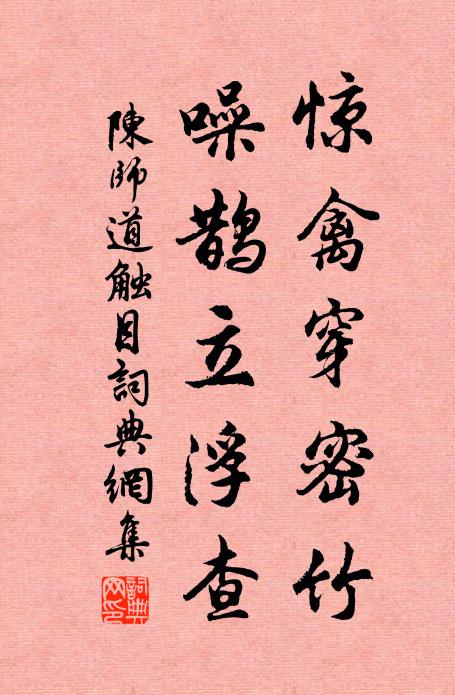 惊禽穿密竹
噪鹊立浮查
陳師道触目詞典網集
詞典網印